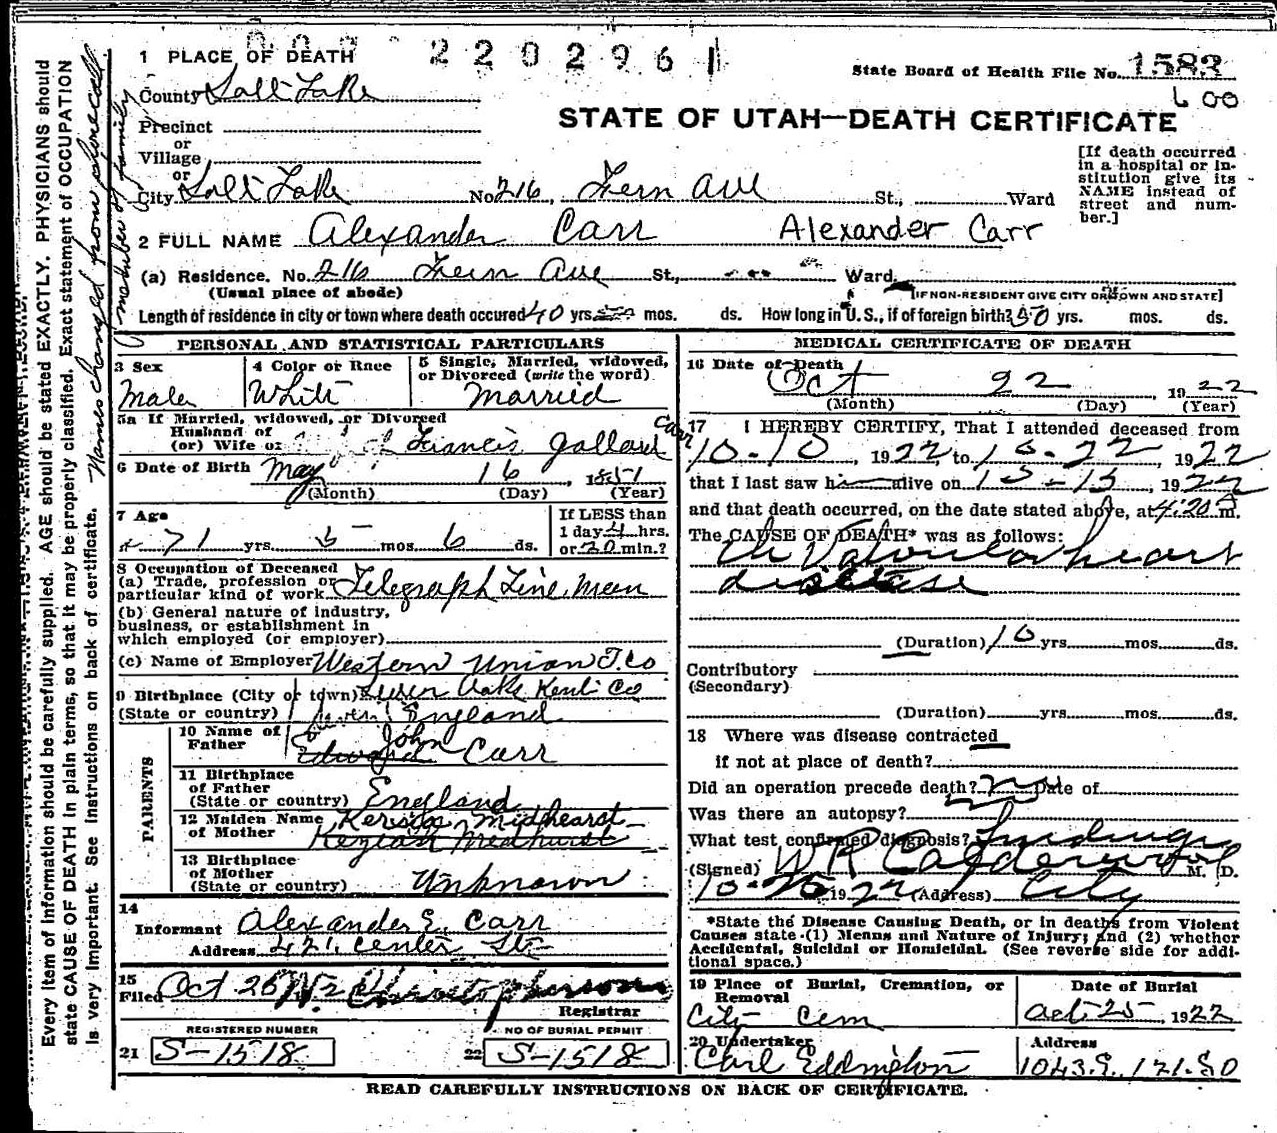 002 220296 1
1 PLACE OF DEATH
State Board of Health File No. 1583
County Salt Lake
600
STATE OF UTAH—DEATH CERTIFICATE
Precinct
or
Village
or
City Salt Lake No. 216, Fern Ave St., Ward
[If death occurred in a hospital or in-stitution give its NAME instead of street and num-ber.]
2 FULL NAME Alexander Carr Alexander Carr
(a) Residence. No. 216 Fern Ave St., Ward.
(Usual place of abode) [IF NON-RESIDENT GIVE CITY OR TOWN AND STATE]
Length of residence in city or town where death occured 40 yrs. mos. ds. How long in U. S., if of foreign birth? 50 yrs. mos. ds.
PERSONAL AND STATISTICAL PARTICULARS
3 Sex
Male
4 Color or Race
White
5 Single, Married, widowed, or Divorced (write the word)
Married
5a If Married, widowed, or Divorced
Husband of
(or) Wife of Francis Gallard Carr
6 Date of Birth May 16, 1851
(Month) (Day) (Year)
7 Age
71 yrs. 5 mos. 6 ds.
If LESS than
1 day 4 hrs.
or 20 min.?
8 Occupation of Deceased
(a) Trade, profession or
particular kind of work Telegraph Line Man
(b) General nature of industry,
business, or establishment in
which employed (or employer)
(c) Name of Employer Western Union T. Co
9 Birthplace (City or town) Oake Kent Co
(State or country) England
PARENTS
10 Name of
Father John
Edward Carr
11 Birthplace
of Father
(State or country) England
12 Maiden Name
of Mother Midhearst
Keziah Medhurst
13 Birthplace
of Mother
(State or country) Unknown
14
Informant Alexander E. Carr
Address 421 Center St
15
Filed Oct 26 Christopherson
Registrar
REGISTERED NUMBER
21 S-1518
NO OF BURIAL PERMIT
22 S-1518
MEDICAL CERTIFICATE OF DEATH
16 Date of Death
Oct 22 1922
(Month) (Day) (Year)
17 I HEREBY CERTIFY, That I attended deceased from
10-10, 1922, to 10-22, 1922
that I last saw him alive on 10-15, 1922
and that death occurred, on the date stated above, at 4:20 A m.
The CAUSE OF DEATH* was as follows:
Ch Valvular heart
disease
(Duration) 10 yrs. mos. ds.
Contributory
(Secondary)
(Duration) yrs. mos. ds.
18 Where was disease contracted
if not at place of death?
Did an operation precede death? no Date of
Was there an autopsy?
What test confirmed diagnosis? Findings
(Signed) W R Calderwood M. D.
10-25 1922 (Address) City
*State the Disease Causing Death, or in deaths from Violent
Causes state (1) Means and Nature of Injury; and (2) whether
Accidental, Suicidal or Homicidal. (See reverse side for addi-
tional space.)
19 Place of Burial, Cremation, or
Removal
City Cem
Date of Burial
Oct 25, 1922
20 Undertaker
Carl Eddington
Address
1043 E. 21 So
READ CAREFULLY INSTRUCTIONS ON BACK OF CERTIFICATE.
Every item of information should be carefully supplied. AGE should be stated EXACTLY. PHYSICIANS should
state CAUSE OF DEATH in plain terms, so that it may be properly classified. Exact statement of OCCUPATION
is very important. See instructions on back of certificate.
Names changed from phone call
member of family